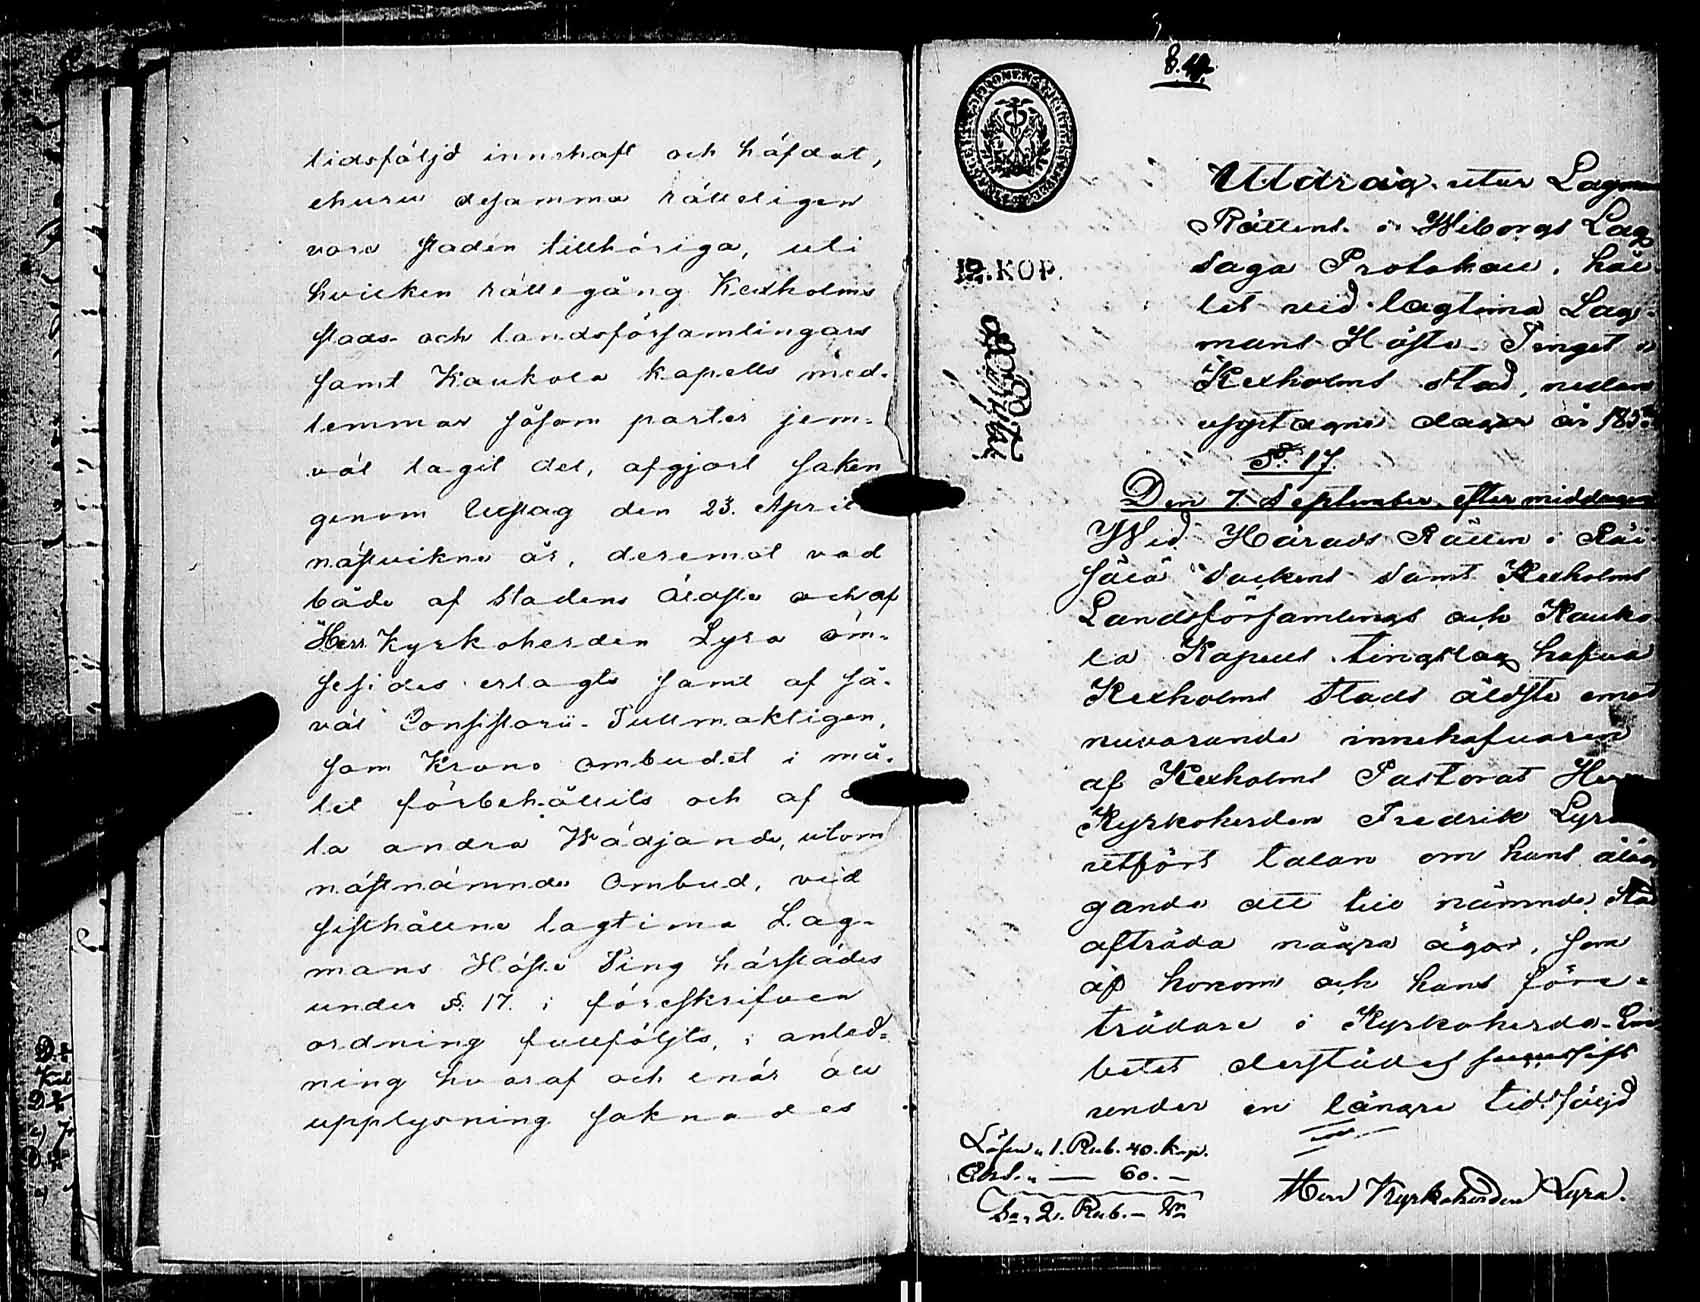 tidsföljd innehaft och häfdat,
ehuru desamma rätteligen
vore staden tillhöriga, uti
hvilken rättegång Kexholms
stads- och landsförsamlingars
samt Kaukola kapells med-
lemmar såsom parter jem-
väl tagit del, afgjort saken
genom Utslag den 23. April
nästvikne år, deremot vad
både af Stadens Äldste och af
Herr Kyrkoherden Lyra öm-
sesides erlagts samt af så-
väl Consistorii-Fullmäktigen,
som Krono ombudet i må-
let förbehållits och af
la andra Wädjande, utom
nästnämnde Ombud, vid
sisthållne lagtima Lag-
mans Höste Ting härstädes
under §. 17. i föreskrifven
ordning fullföljts, i anled-
ning hvaraf och enär all
upplysning saknades
8.
12. KOP.
Utdrag utur Lagmans
Rättens i Wiborgs Lag
saga Protokoll, hål-
let vid lagtima Lag-
mans Höste-Tinget i
Kexholms stad, nedan
upptagne dagar år 185
§. 17.
Den 7. September, efter middagen
Wid Härads Rätten i Räi-
sälä Sockens samt Kexholms
Landsförsamlings och Kauko-
la Kapells tingslag hafva
Kexholms Stads äldste emot
nuvarande innehafvaren
af Kexholms Pastorat Herr
Kyrkoherden Fredrik Lyra
utfört talan om hans åläg
gande att till nämnde Stad
afträda några ägor, som
af honom och hans före-
trädare i Kyrkoherde-Em
betet derstädes
under en längre tidsföljd
Lösen " 1. Rub. 40. Kop.
" — 60. —
Sa " 2. Rub. — Sr
Herr Kyrkoherden Lyra.